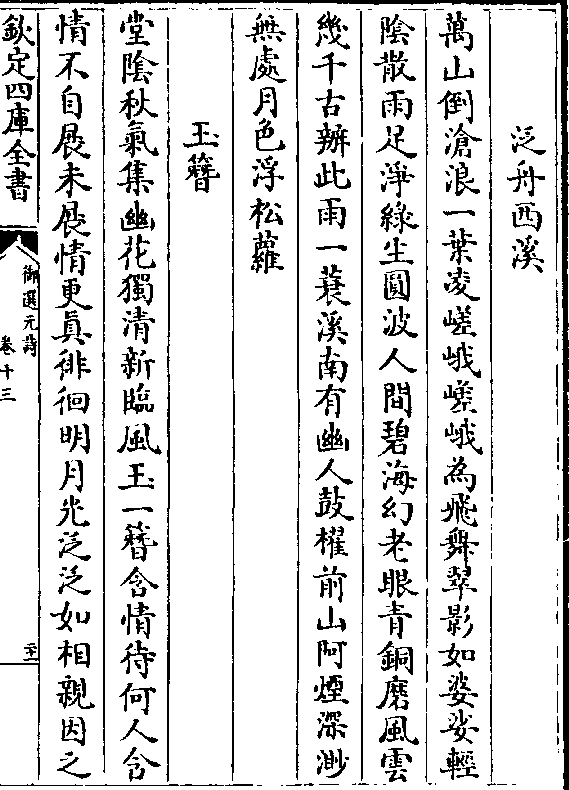 泛舟西溪
萬山倒滄浪一葉凌嵯峨嵯峨為飛舞翠影如婆娑輕
陰散雨足淨綠生圓波人間碧海幻老眼青銅磨風雲
幾千古辦此雨一蓑溪南有幽人鼓櫂前山阿煙深渺
無處月色浮松蘿
玉簪
堂陰秋氣集幽花獨清新臨風玉一簪含情待何人含
情不自展未展情更眞徘徊明月光泛泛如相親因之
欽定四庫全書
御選元詩
卷十三